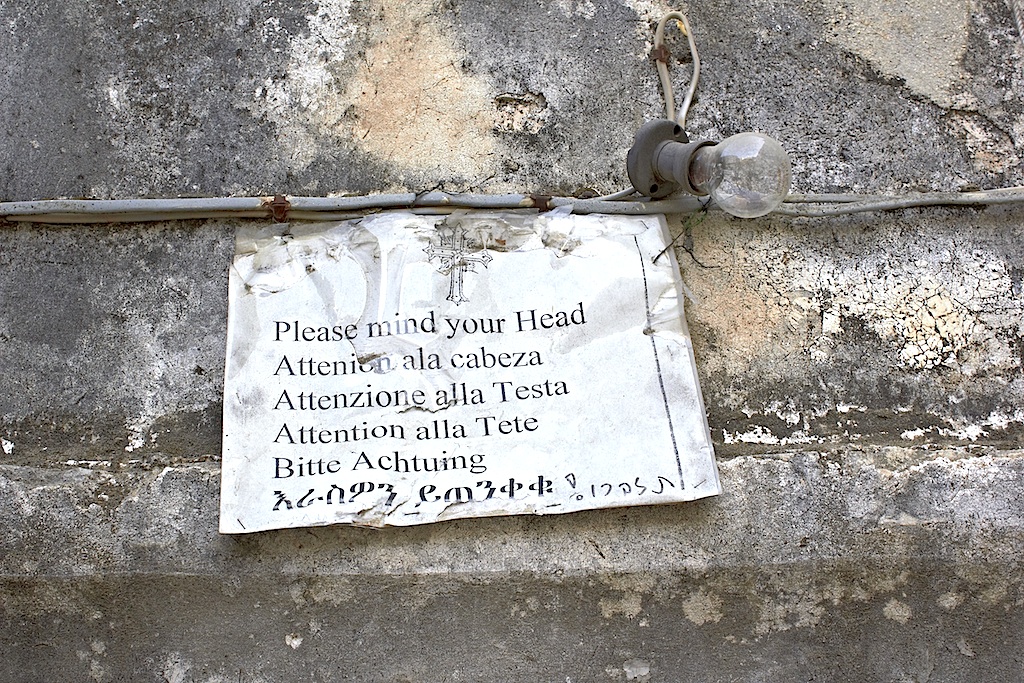 Please mind your Head
Attenion ala cabeza
Attenzione alla Testa
Attention alla Tete
Bitte Achtuing
እራስዎን ይጠንቀቁ